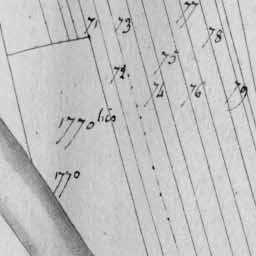 77
71 73
78
75
72.
74 76 79
1770
1770